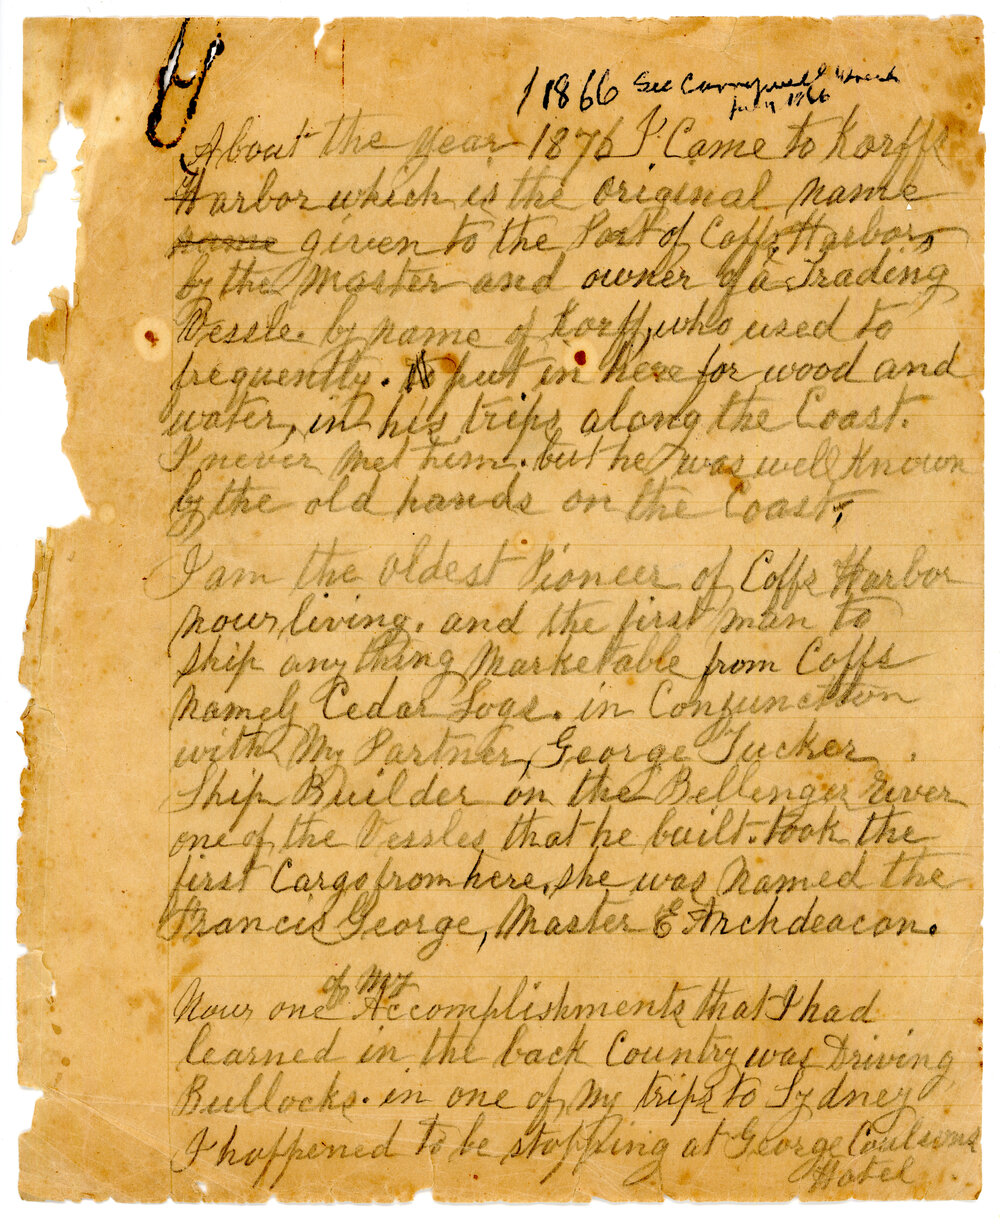 1866 See
July 1866
About the year 1876 I Came to Korffs
Harbor which is the original name
name given to the Port of Coffs Harbor,
by the Master and owner of a Trading
Vessle. by name of Korff, who used to
frequently. to put in here for wood and
water, in his trips along the Coast.
I never Met him. but he was well Known
by the old hands on the Coast,
I am the oldest Pioneer of Coffs Harbor
now living. and the first man to
ship any thing Marketable from Coffs
namely Cedar Logs. in Conjunction
with My Partner, George Tucker
Ship Builder on the Bellenger River
one of the Vessles that he built. took the
first Cargo from here, she was named the
Francis George, Master E Archdeacon.
of My
Now one Accomplishments that I had
learned in the back Country was Driving
Bullocks. in one of My trips to Sydney
I happened to be stopping at George Coulsons
Hotel